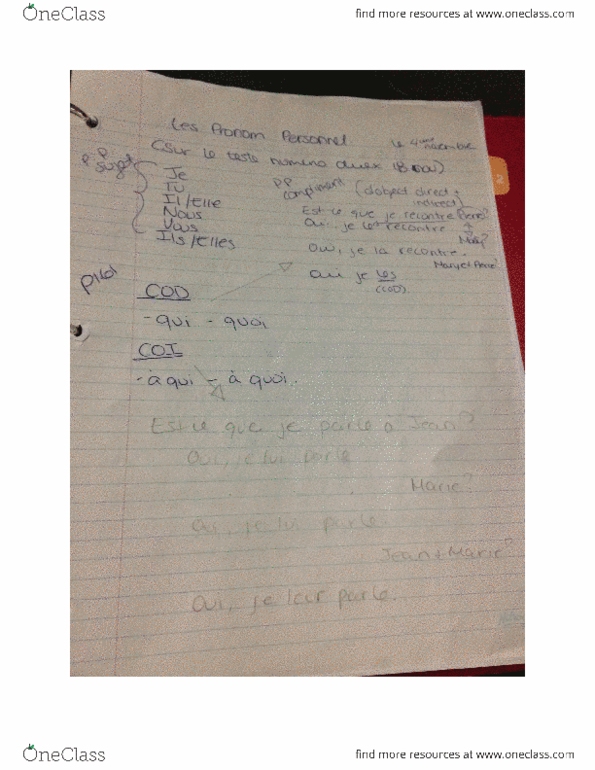 OneClass
find more resources at www.oneclass.com
Les Pronom Personnel
le 4 novembre
(sur le teste numéro duex (8 nov)
P P sujet
Je
Tu
Il/Elle
Nous
Vous
Ils/Elles
PP compliment (d'object direct + indirect)
Est ce que je recontre Pierre?
Oui, je le recontre
Mary?
Oui, je la recontre.
Mary et Pierre?
Oui je les
(COD)
COD
- qui - quoi
COI
- à qui - à quoi.
Est ce que je parle à Jean?
Oui, je lui parle
Marie?
Oui, je lui parle
Jean + Marie?
Oui, je leur parle.
OneClass
find more resources at www.oneclass.com